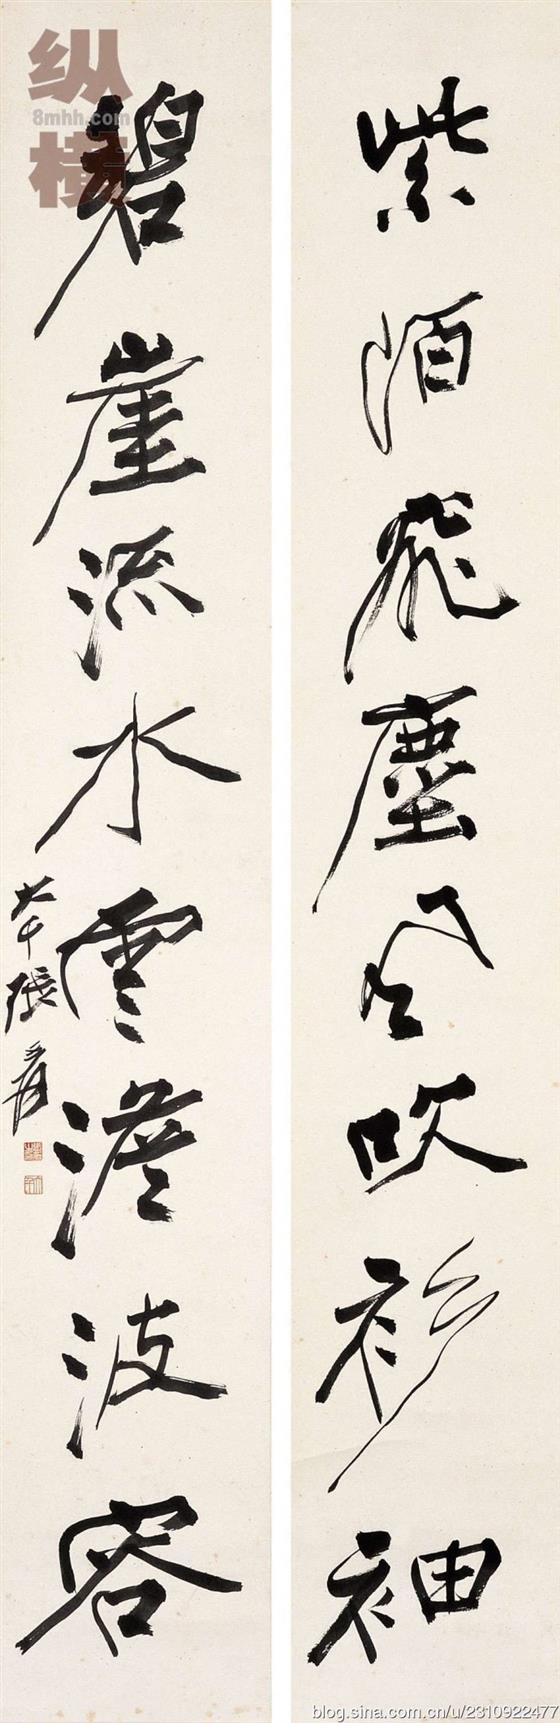 紫陌飛塵風吹衫袖
碧崖流水雲澹波容
大千張爰
纵横
8mhh.com
blog.sina.com.cn/u/2310922477